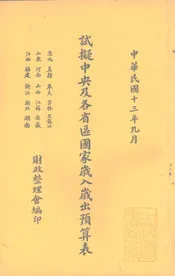 中華民國十三年九月
試擬中央及各省區國家歲入歲出預算表
京兆 直隸 奉天 吉林 黑龍江
山東 河南 山西 江蘇 安徽
江西 福建 浙江 湖北 湖南
財政整理會編印